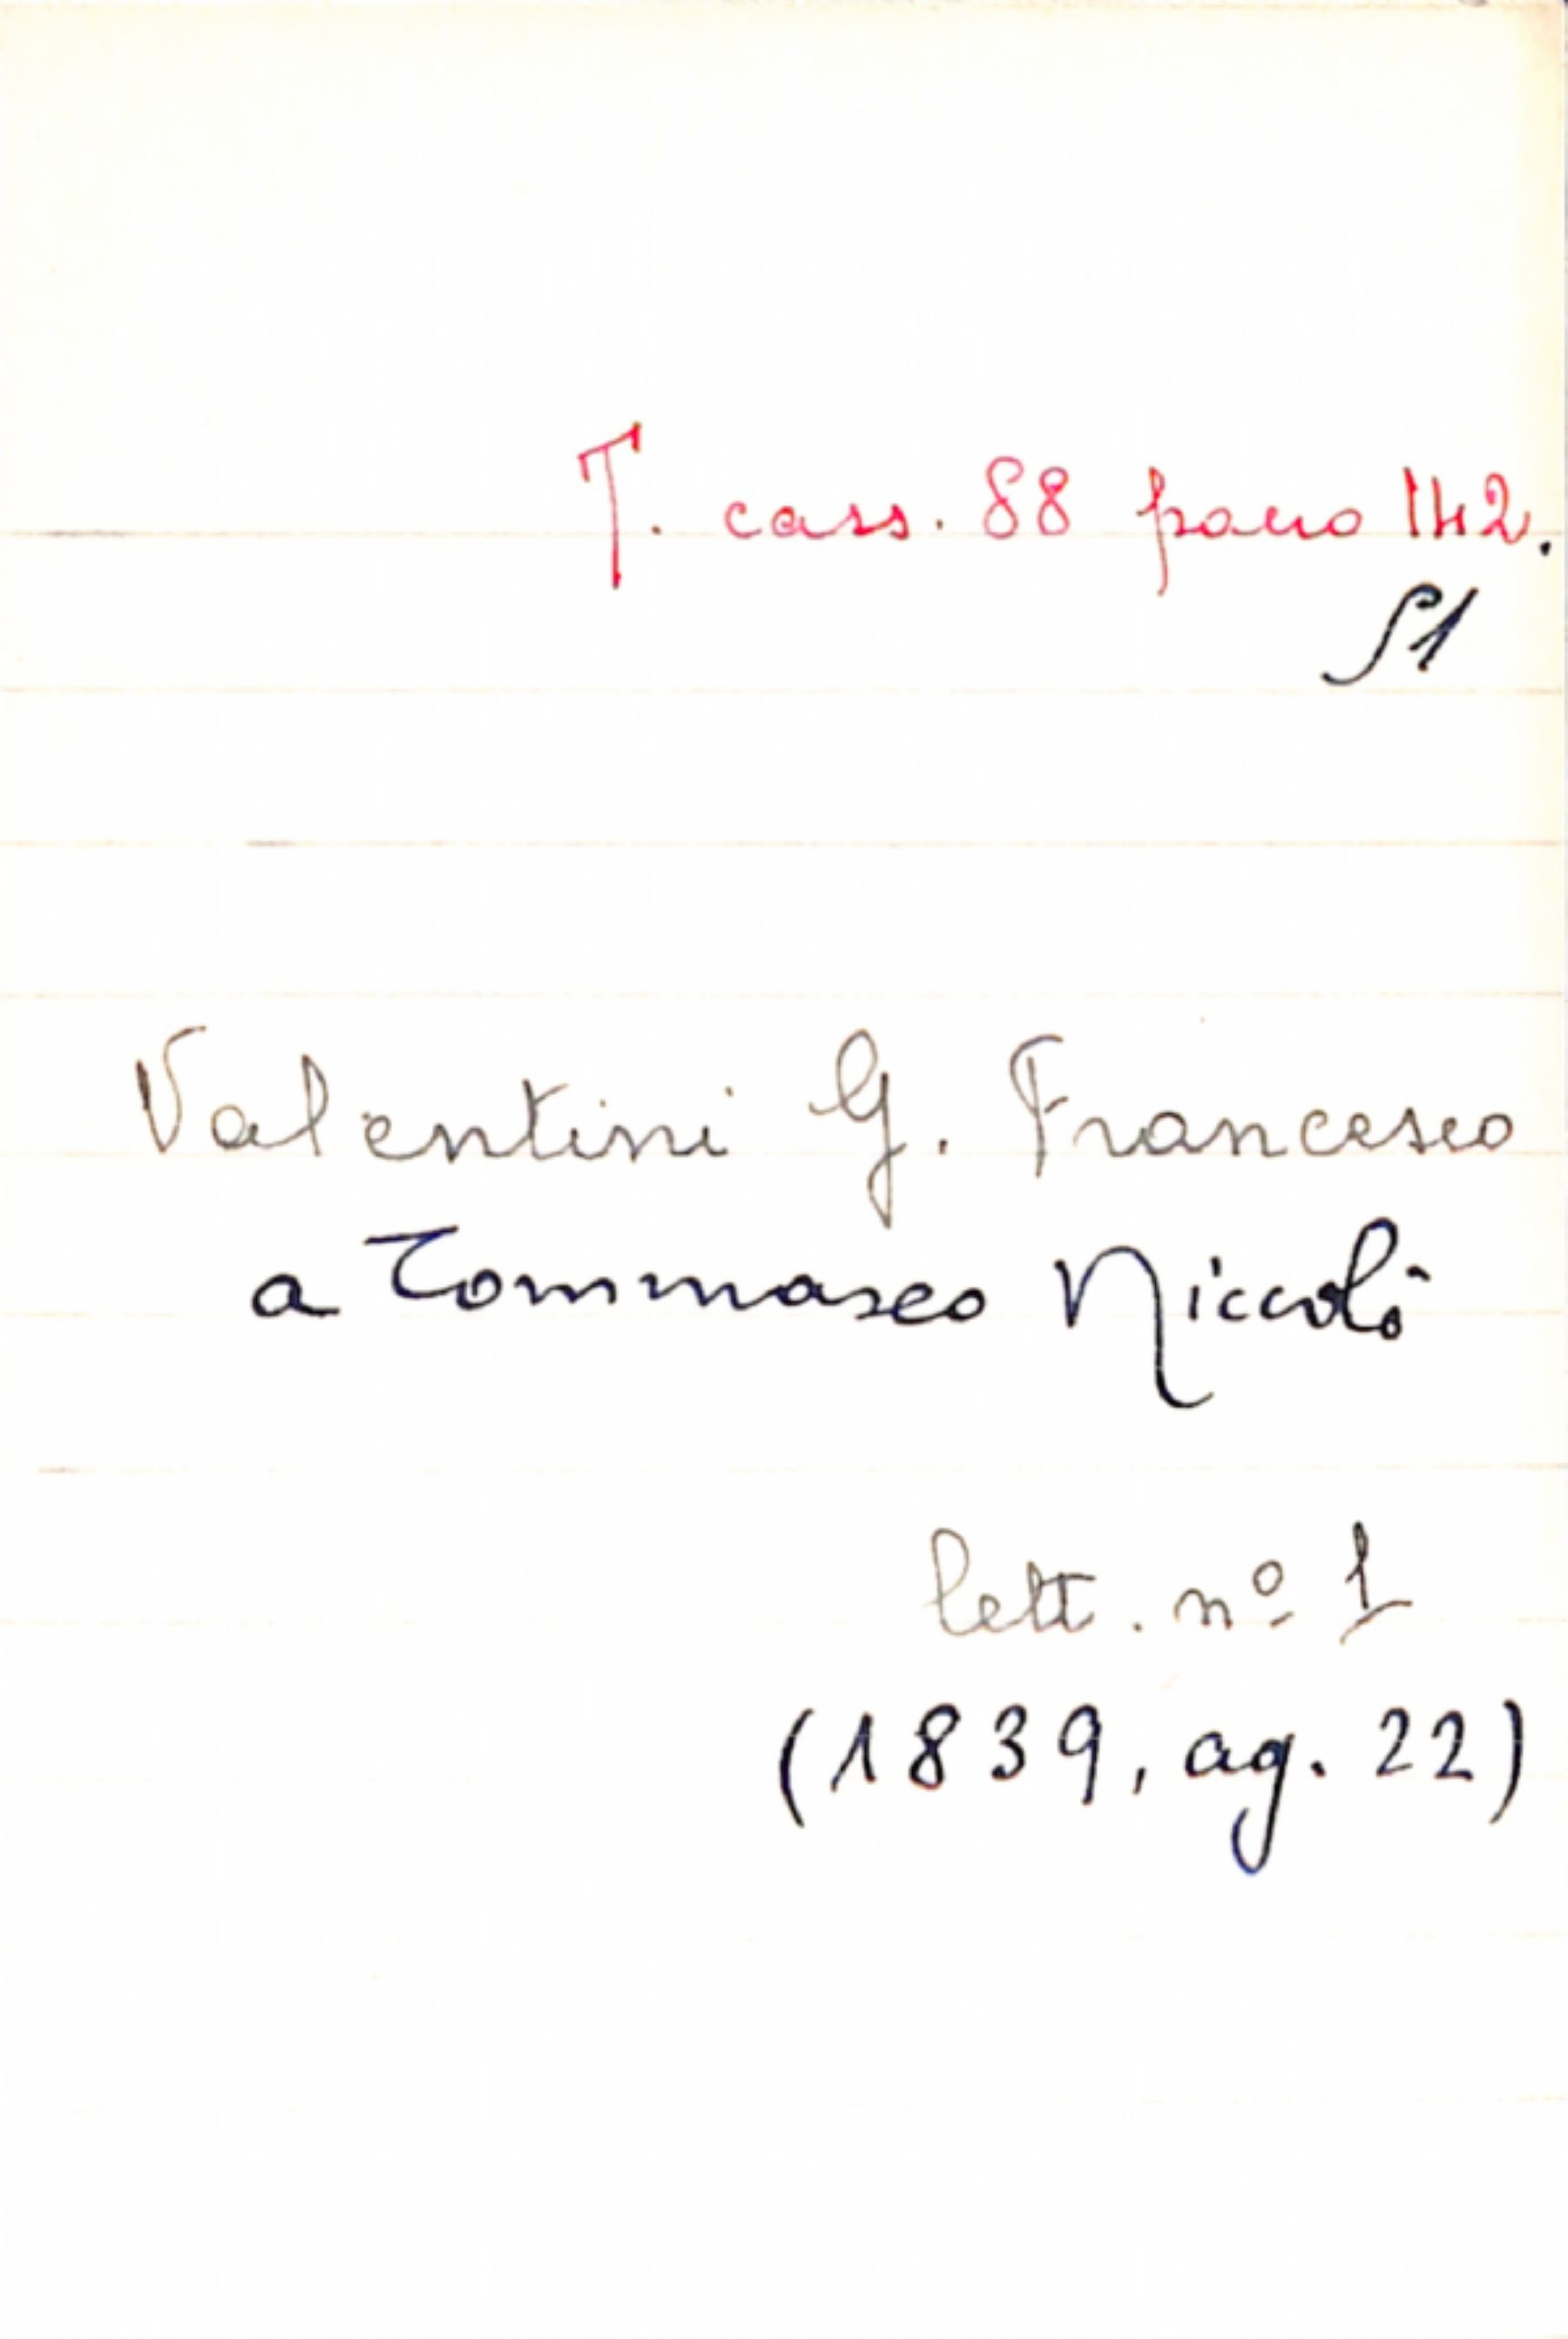 T. cass. 88 pacco 142.
51
Valentini G. Francesco
a Tommaseo Niccolò
lett. nº 1
(1839, ag. 22)